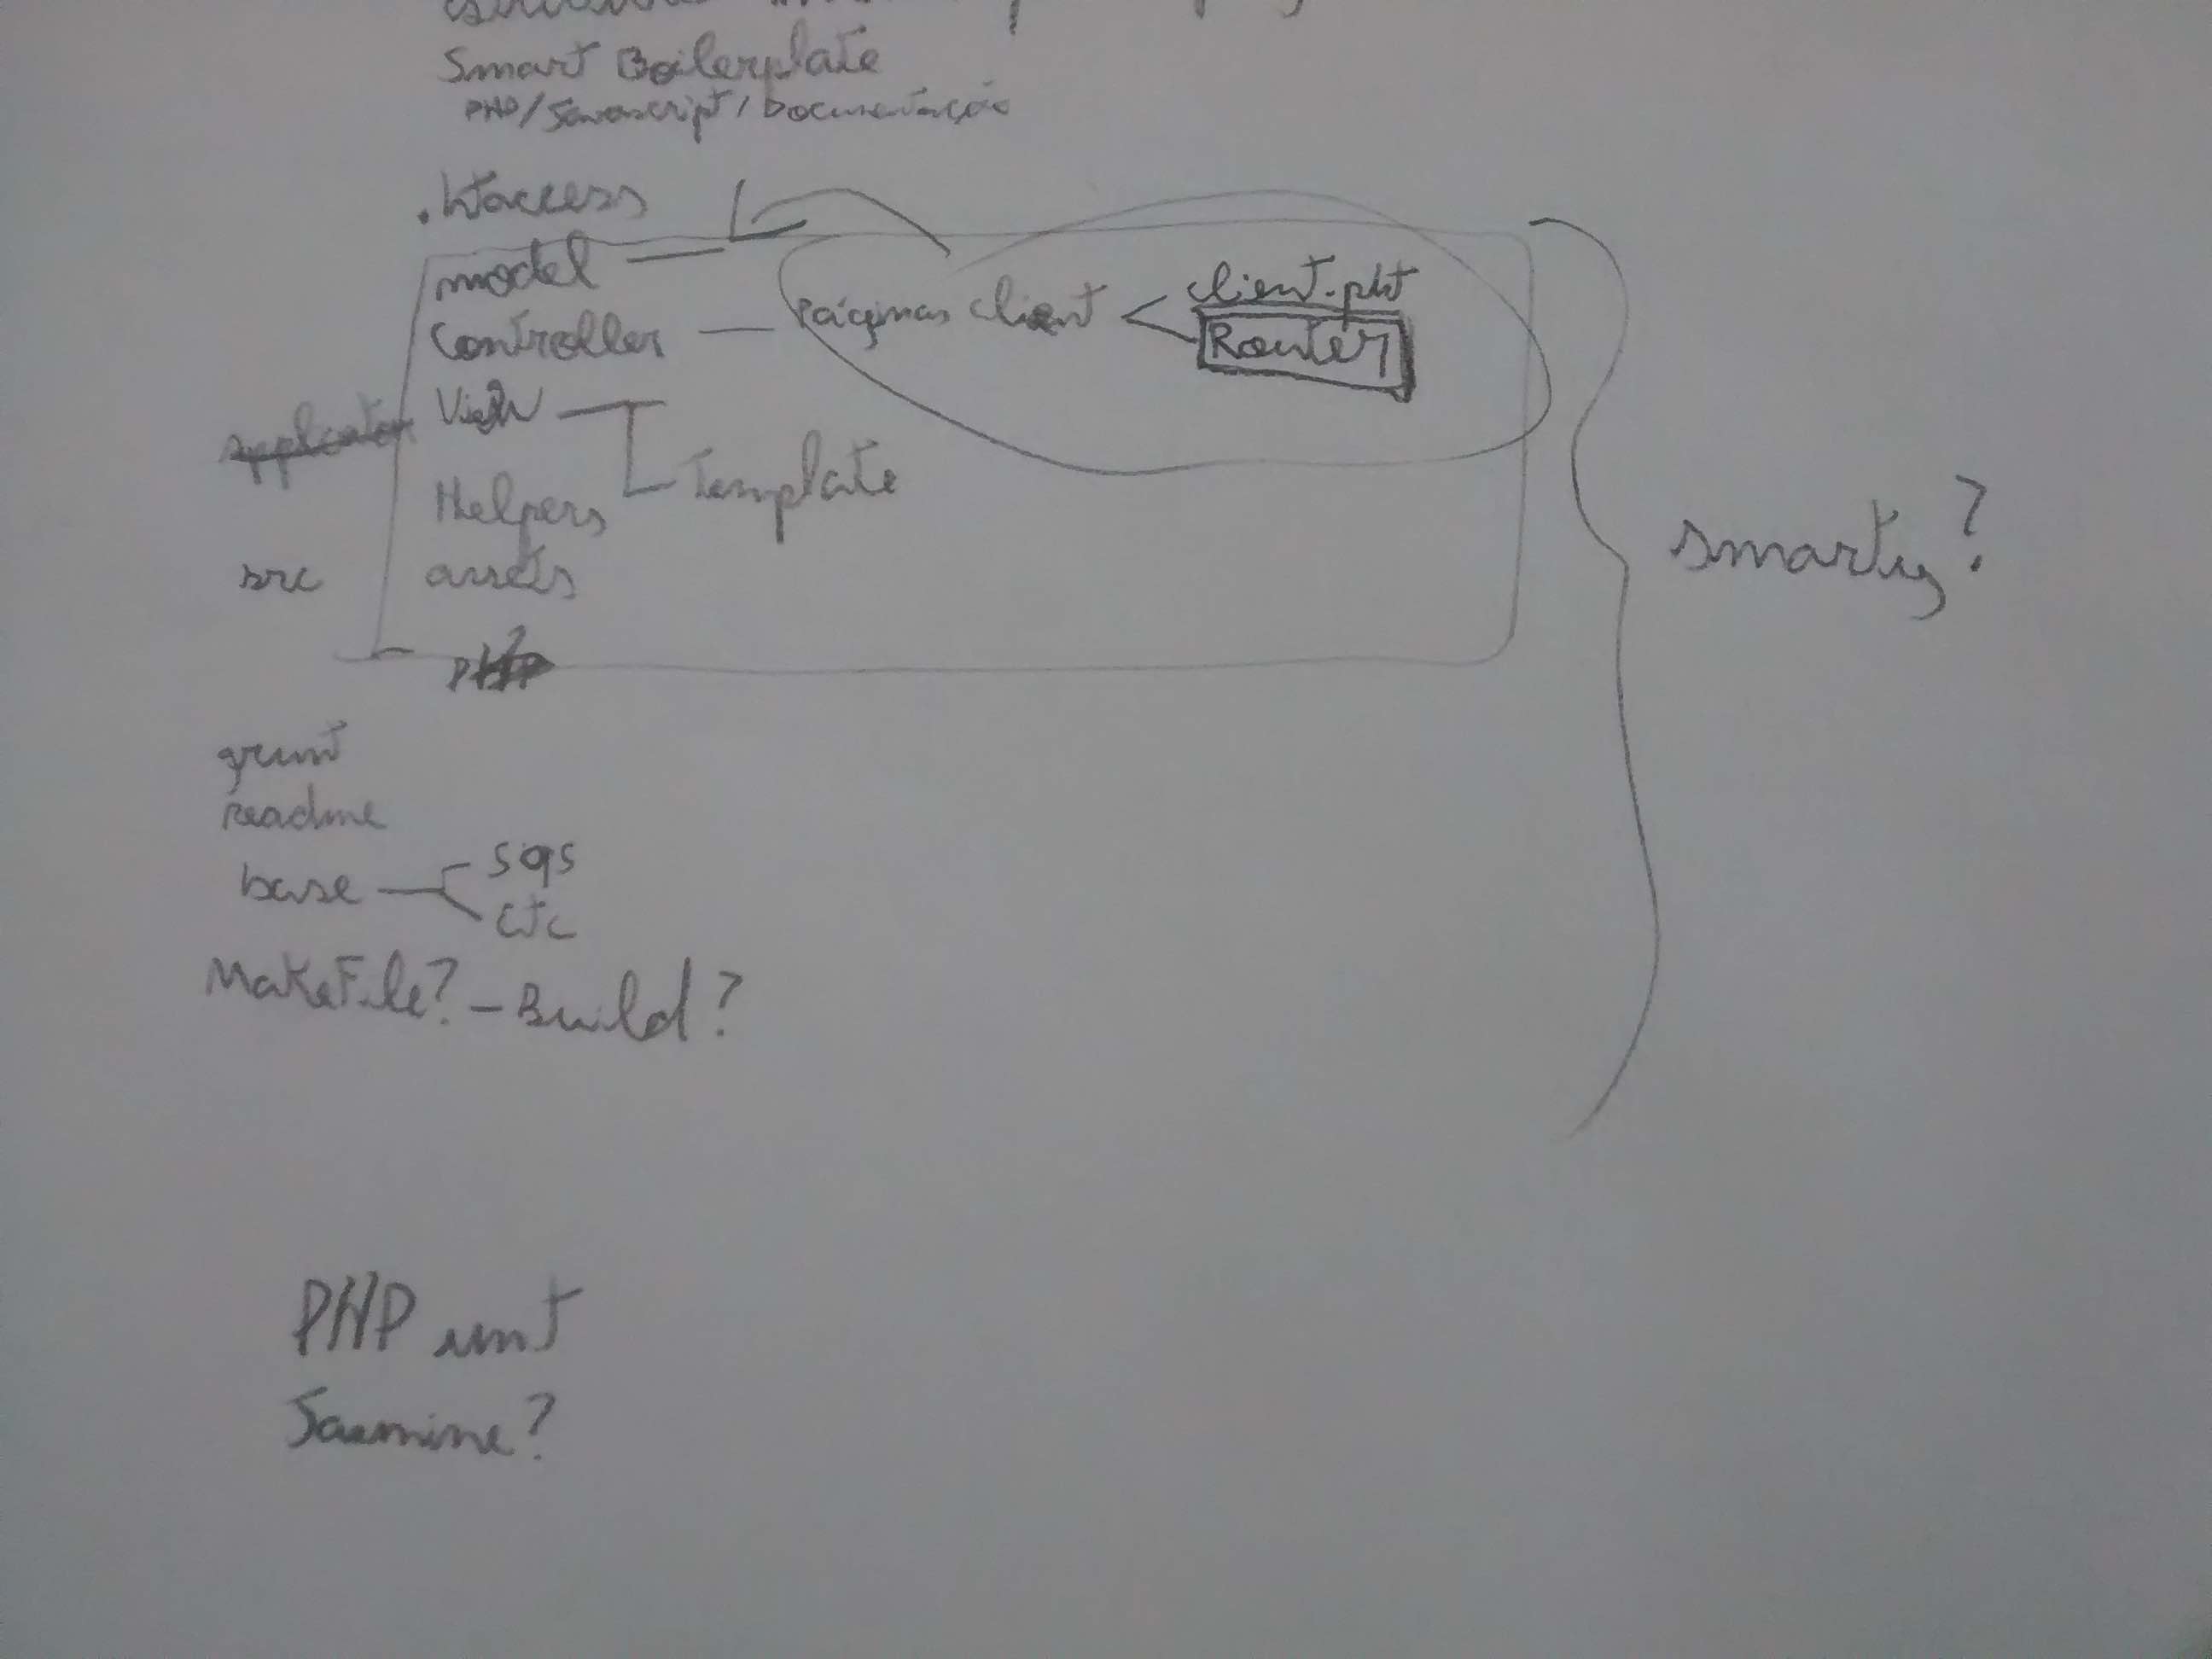 Smart Boilerplate
PHP/Javascript/Documentação
.htaccess
model
Controller — Páginas client
client.pht
Router
View
Template
application
Helpers
src
assets
PHP
smarty?
grunt
Readme
base
sqs
etc
MakeFile? - Build?
PHP unit
Jasmine?